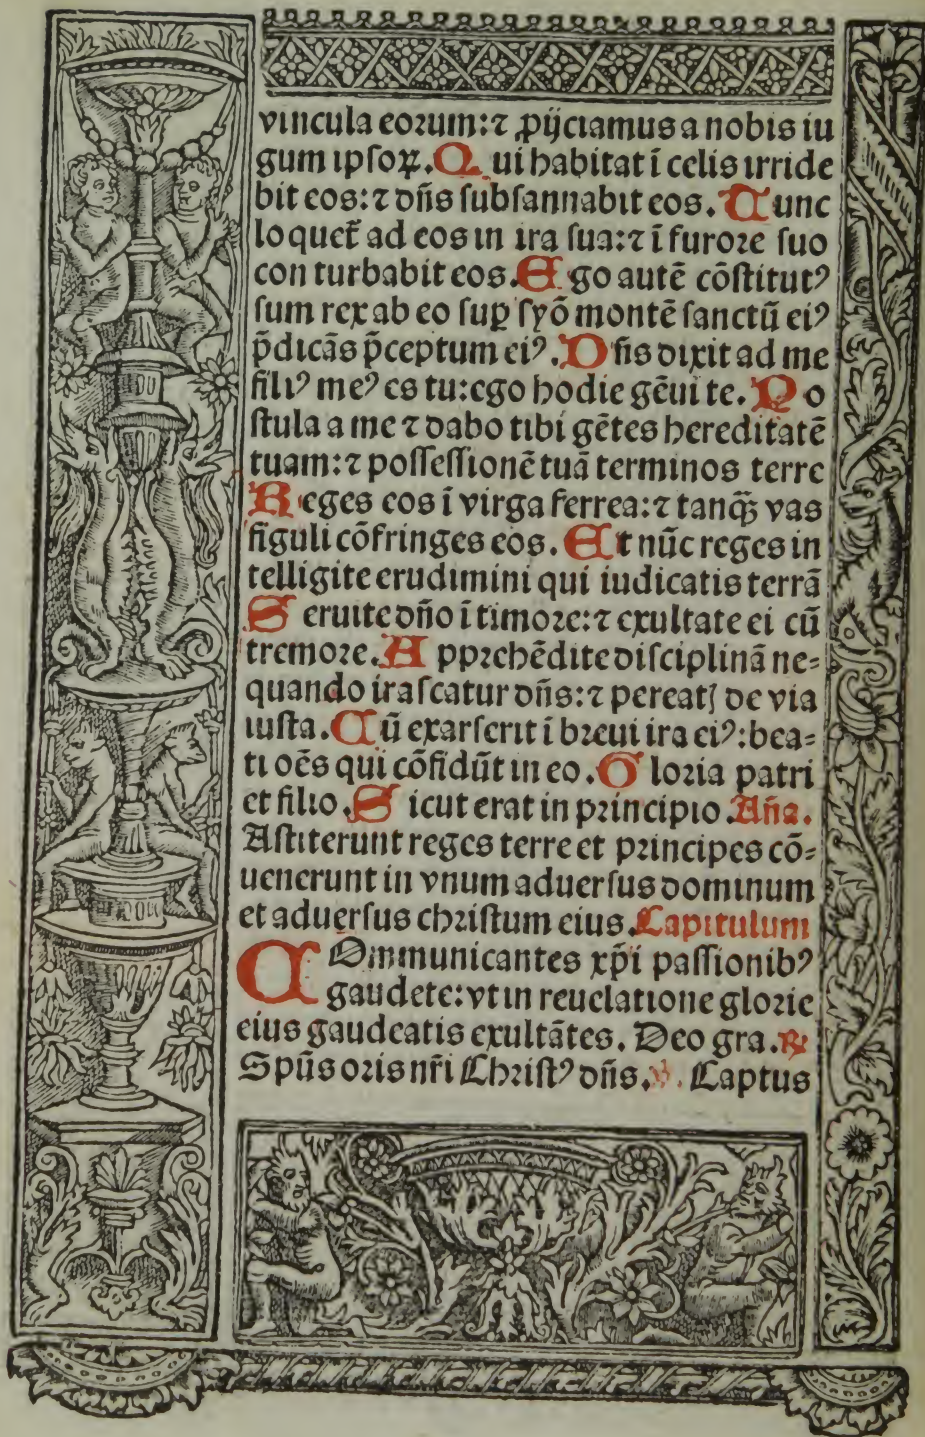 vincula eoꝛum:⁊ ꝓijciamus a nobis iu
gum ipſoꝝ. Qui habitat ĩ celis irride
bit eos:⁊ dñs ſubſannabit eos. Tunc
loquet̃ ad eos in ira ſua:⁊ ĩ furoꝛe ſuo
con turbabit eos. Ego autē cōſtitutꝰ
ſum rex ab eo ſuꝑ ſyõ montē ſanctũ eiꝰ
p̃dicãs p̃ceptum eiꝰ. Dñs dixit ad me
filiꝰ meꝰ es tu:ego hodie gẽui te. Po
ſtula a me ⁊ dabo tibi gẽtes hereditatẽ
tuam:⁊ poſſeſſionẽ tuã terminos terre
Reges eos ĩ virga ferrea:⁊ tanqꝫ vas
figuli cõfringes eos. Et nũc reges in
telligite erudimini qui iudicatis terrã
Seruite dño ĩ timoꝛe:⁊ exultate ei cũ
tremoꝛe. Appꝛehẽdite diſciplinã ne⸗
quando iraſcatur dñs:⁊ pereatꝭ de via
iuſta. Cũ exarſerit ĩ bꝛeui ira eiꝰ:bea⸗
ti oẽs qui cõfidũt in eo. Gloria patri
et filio. Sicut erat in pꝛincipio Aña.
Aſtiterunt reges terre et pꝛincipes cõ⸗
uenerunt in vnum aduerſus dominum
et aduerſus chꝛiſtum eius. Capitulum
COmmunicantes xp̃i paſſionibꝰ
gaudete:vt in reuelatione gloꝛie
eius gaudeatis exultãtes. Deo gra. ℟
Spũs oꝛis nr̃i Chꝛiſtꝰ dñs. ℣. Captus